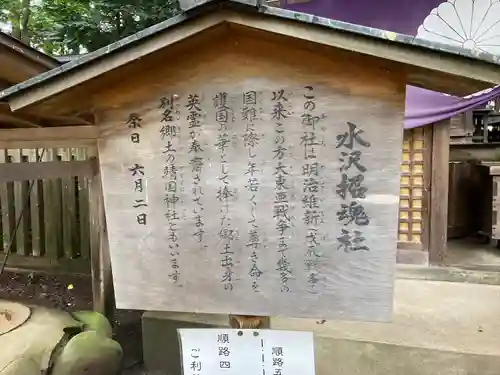 水沢招魂社
この御社は明治維新（戊辰戦争）
以来この方大東亜戦争まで幾多の
国難に際し年若くして尊い命を
護国の華として捧げた郷土出身の
英霊が奉斎されています。
別名郷土の靖国神社ともいいます。
祭日　六月二日
順路四
ご
順路五